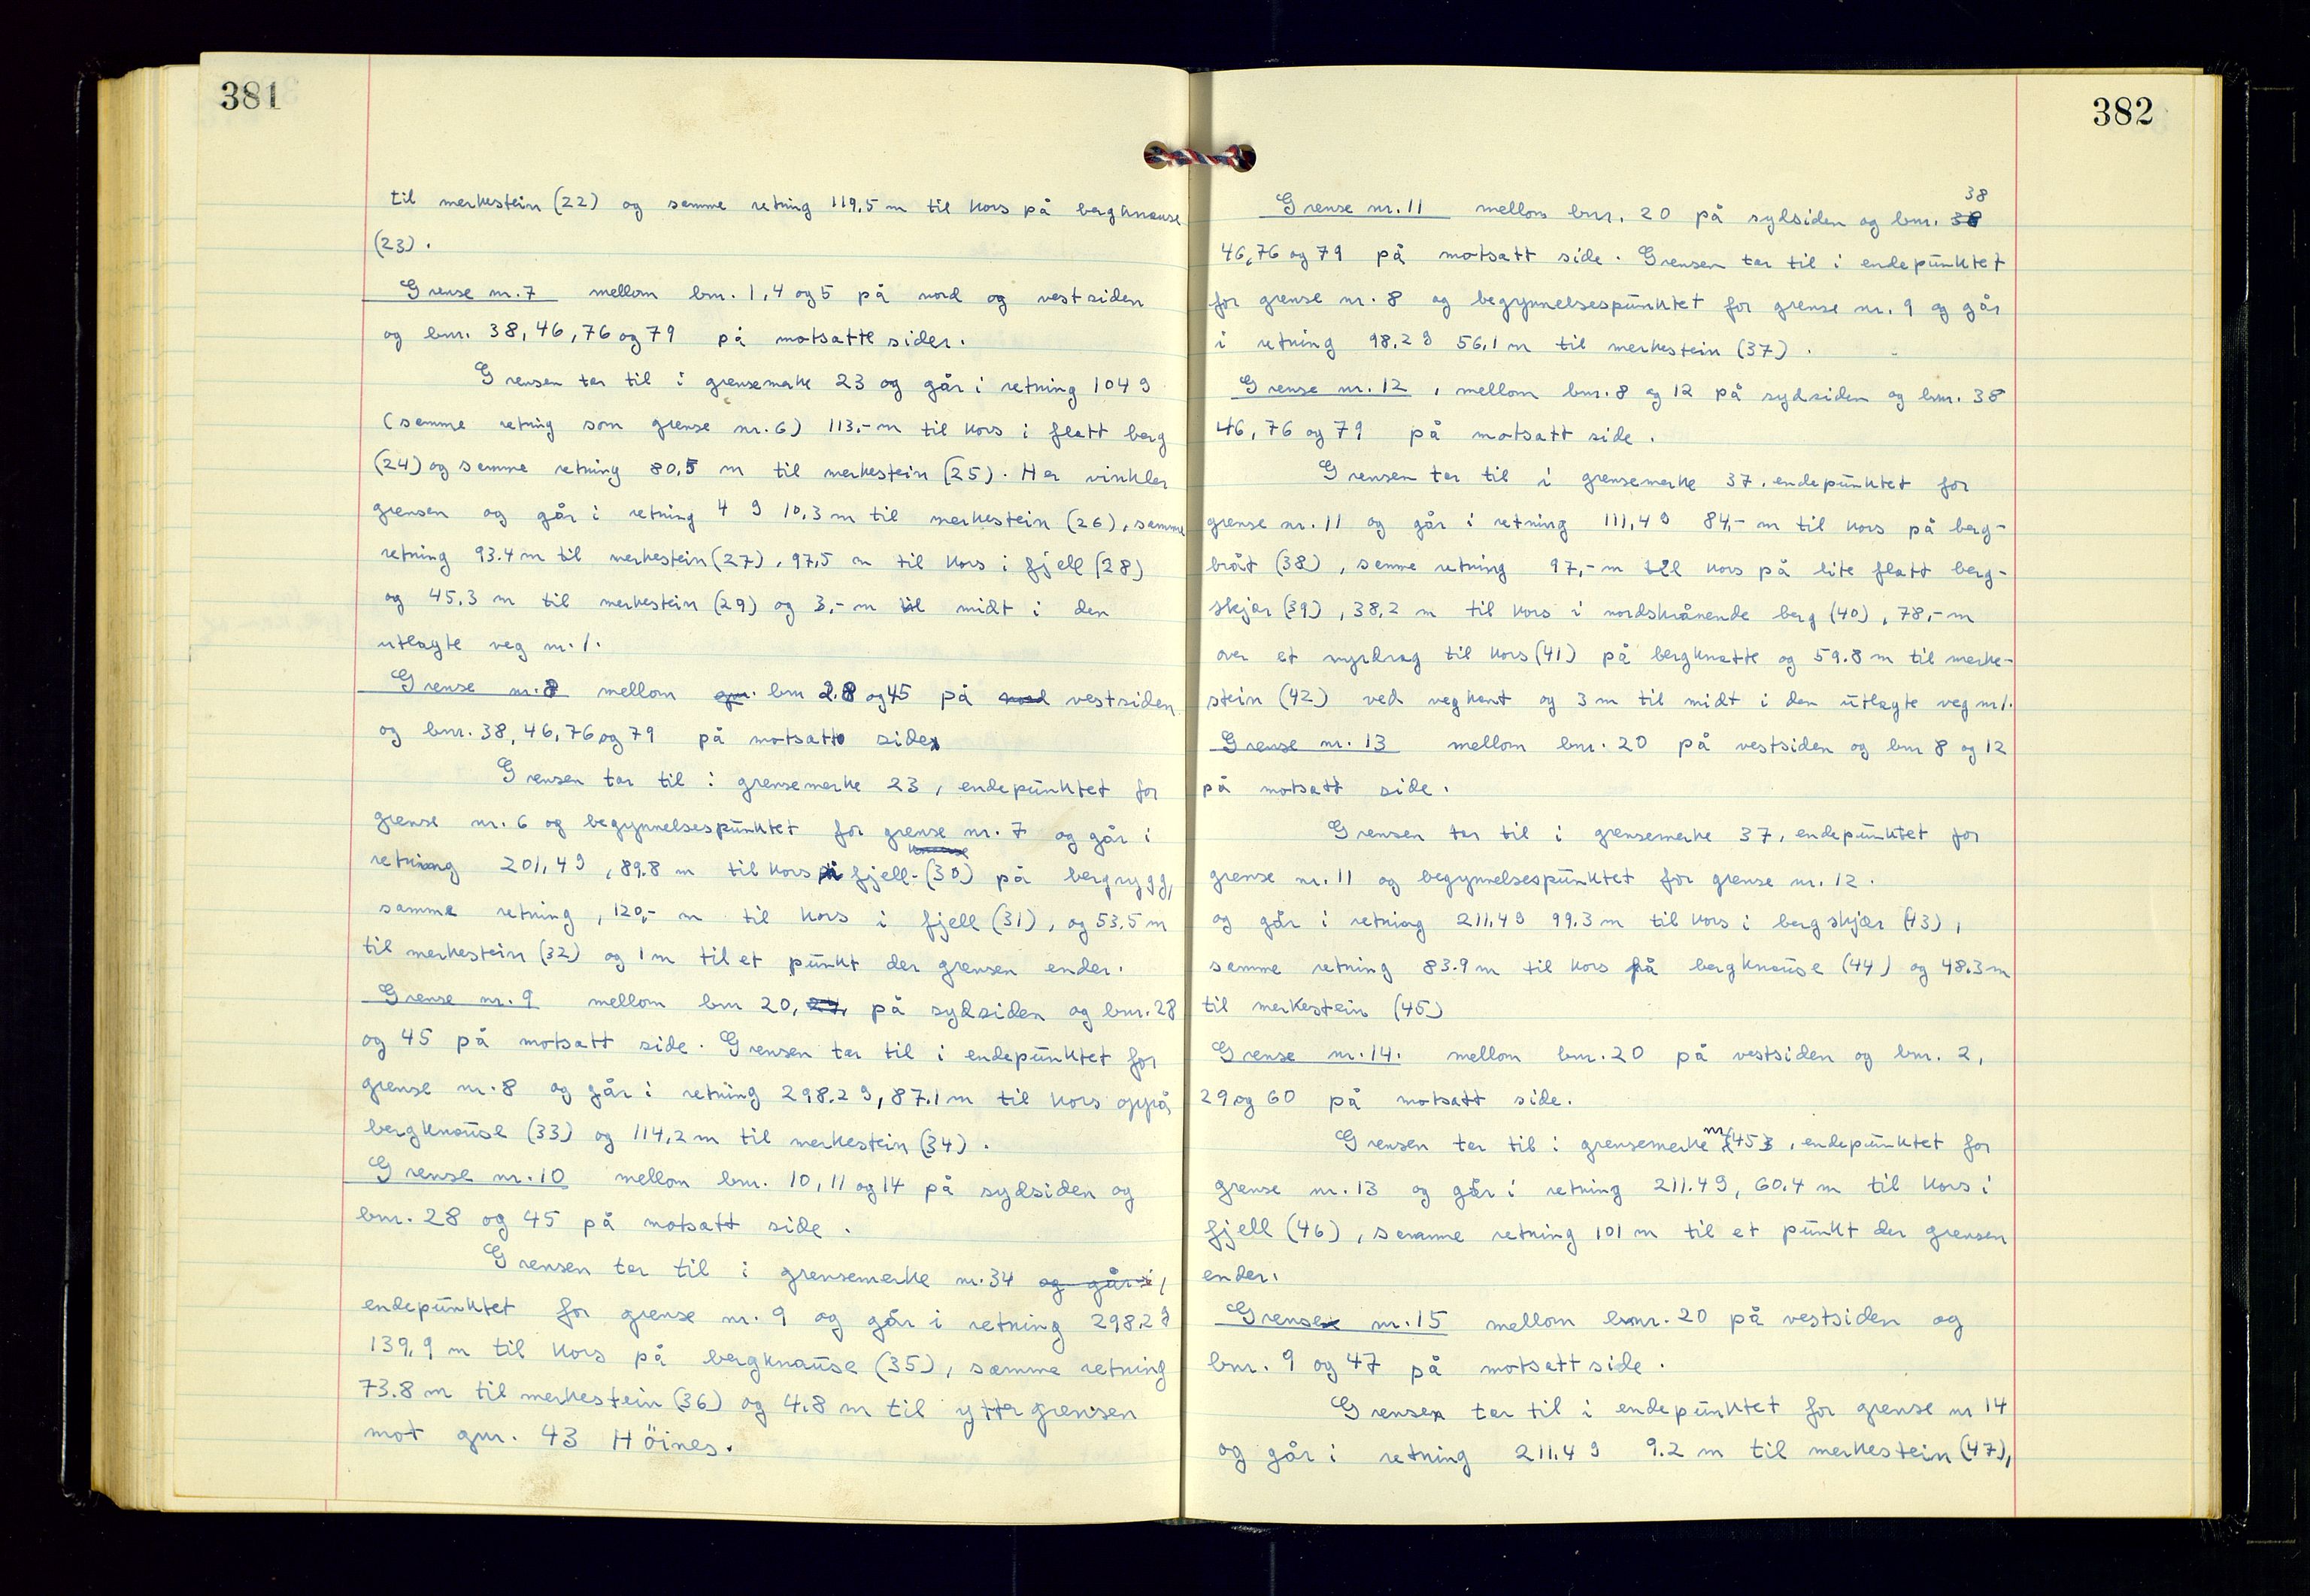 381
til merkestein (22) og samme retning 119,5 m til kors på bergknause
(23).
Grense nr. 7 mellom bnr. 1, 4 og 5 på nord og vestsiden
og bnr. 38, 46, 76 og 79 på motsatte sider.
Grensen tar til i grensemerke 23 og går i retning 104 g
(samme retning som grense nr. 6) 113,- m til kors i flatt berg
(24) og samme retning 80,5 m til merkestein (25). Her vinkler
grensen og går i retning 4 g 10,3 m til merkestein (26), samme
retning 93.4 m til merkestein (27), 97,5 m til kors i fjell (28)
og 45,3 m til merkestein (29) og 3,- m til midt i den
utlagte veg nr. 1.
Grense nr. 8 mellom gnr. bnr 28 og 45 på nord vestsiden
og bnr. 38, 46, 76 og 79 på motsatt side
Grensen tar til i grensemerke 23, endepunktet for
grense nr. 6 og begynnelsespunktet for grense nr. 7 og går i
retning 201,4 g, 89.8 m til kors i fjell (30) på bergrygg,
samme retning, 120,- m til kors i fjell (31), og 53,5 m
til merkestein (32) og 1 m til et punkt der grensen ender.
Grense nr. 9 mellom bnr 20, på sydsiden og bnr. 28
og 45 på motsatt side. Grensen tar til i endepunktet for
grense nr. 8 og går i retning 298.2 g, 87.1 m til kors oppå
bergknause (33) og 114,2 m til merkestein (34).
Grense nr. 10 mellom bnr. 10, 11 og 14 på sydsiden og
bnr. 28 og 45 på motsatt side.
Grensen tar til i grensemerke nr. 34 og går i,
endepunktet for grense nr. 9 og går i retning 298,2 g
139,9 m til kors på bergknause (35), samme retning
73.8 m til merkestein (36) og 4.8 m til yttergrensen
mot gnr. 43 Höines.
382
38
Grense nr. 11 mellom bnr. 20 på sydsiden og bnr. 38
46, 76 og 79 på motsatt side. Grensen tar til i endepunktet
for grense nr. 8 og begynnelsespunktet for grense nr. 9 og går
i retning 98,2 g 56,1 m til merkestein (37).
Grense nr. 12, mellom bnr. 8 og 12 på sydsiden og bnr. 38
46, 76 og 79 på motsatt side.
Grensen tar til i grensemerke 37, endepunktet for
grense nr. 11 og går i retning 111,4 g 84,- m til kors på berg-
bråt (38), samme retning 97,- m till kors på lite flatt berg-
skjær (39), 38,2 m til kors i nordskrånende berg (40), 78,- m
over et myrdrag til kors (41) på bergknatte og 59.8 m til merke-
stein (42) ved vegkant og 3 m til midt i den utlagte veg nr 1.
Grense nr. 13 mellom bnr. 20 på vestsiden og bnr 8 og 12
på motsatt side.
Grensen tar til i grensemerke 37, endepunktet for
grense nr. 11 og begynnelsespunktet for grense nr. 12.
og går i retning 211.4 g 99.3 m til kors i bergskjær (43),
samme retning 83.9 m til kors på bergknause (44) og 48.3 m
til merkestein (45)
Grense nr. 14. mellom bnr. 20 på vestsiden og bnr. 2,
29 og 60 på motsatt side.
Grensen tar til i grensemerke nr 45, endepunktet for
grense nr. 13 og går i retning 211.4 g, 60.4 m til kors i
fjell (46), samme retning 101 m til et punkt der grensen
ender.
Grense nr. 15 mellom bnr. 20 på vestsiden og
bnr. 9 og 47 på motsatt side.
Grensen tar til i endepunktet for grense nr 14
og går i retning 211.4 g 9.2 m til merkestein (47),